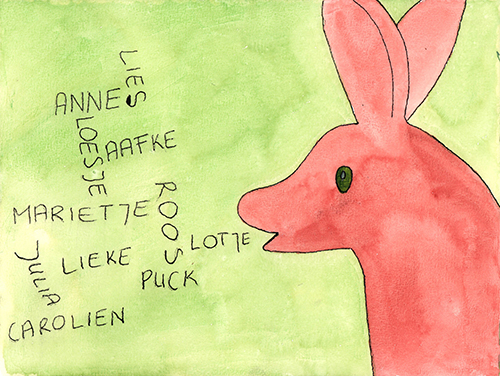 LIES
ANNE
LOESJE
AAFKE
MARIETJE
ROOS
LOTJE
LIEKE
JULIA
PUCK
CAROLIEN